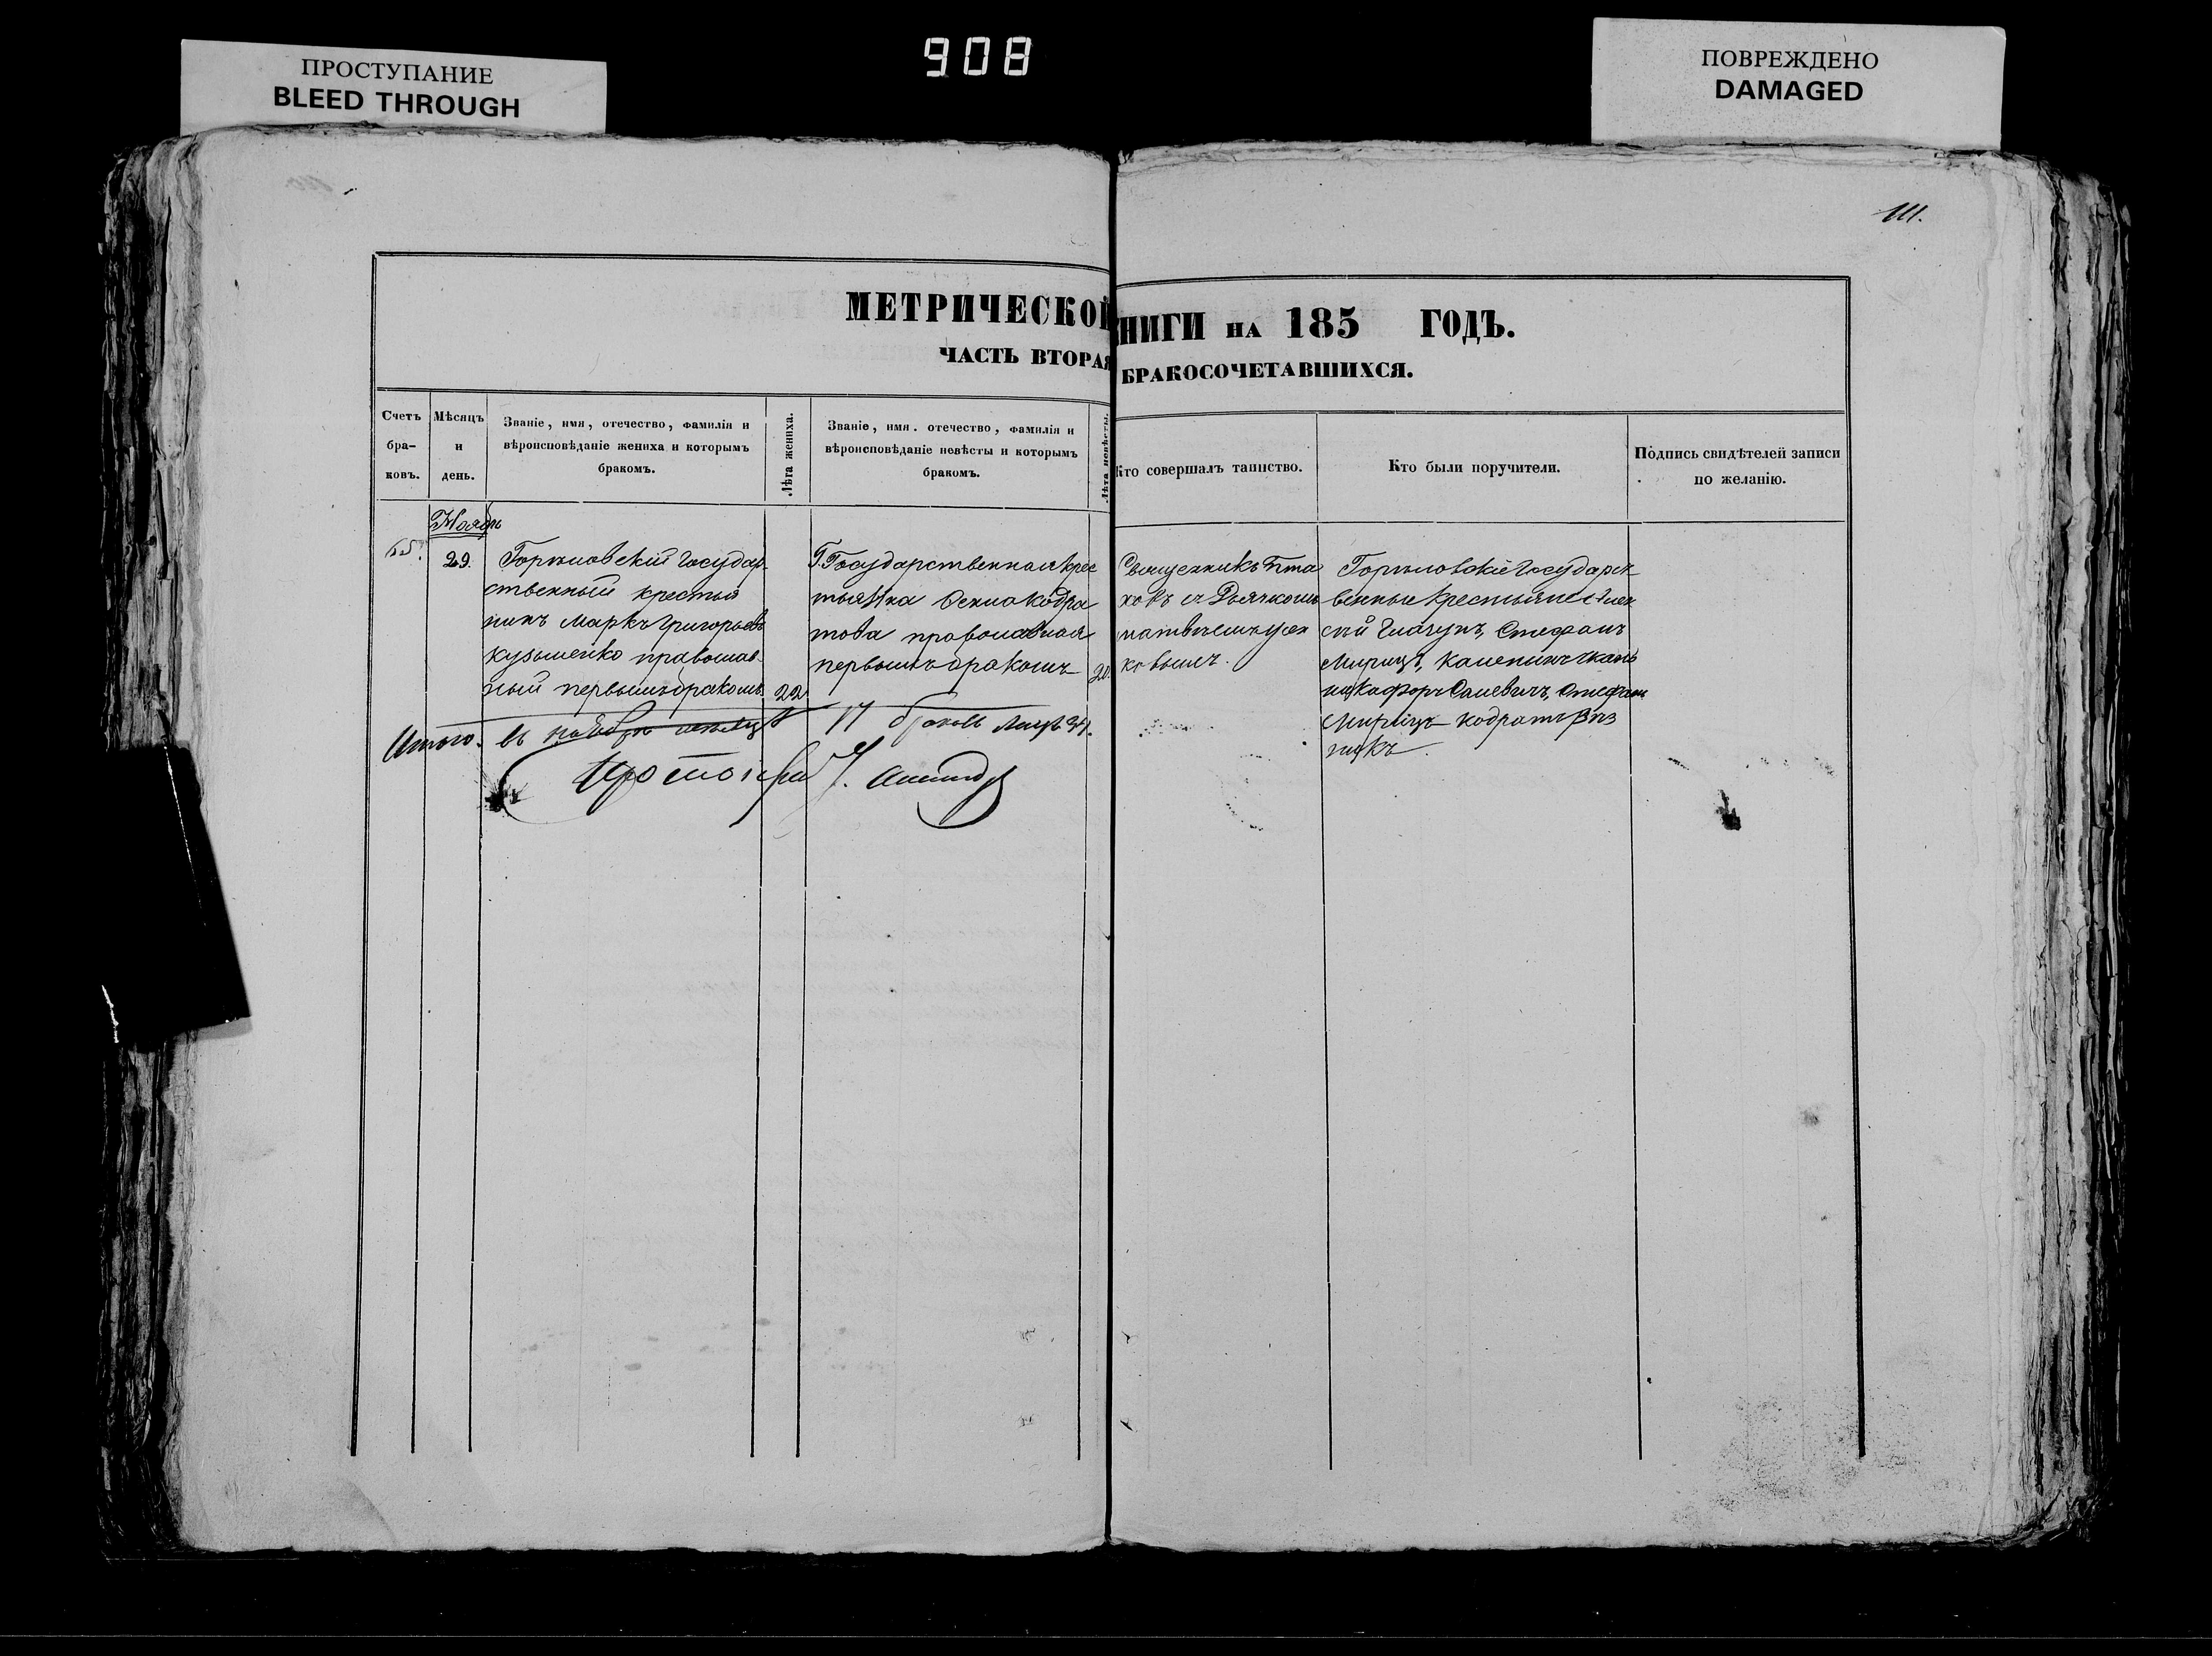 ПРОСТУПАНИЕ
BLEED THROUGH
908
ПОВРЕЖДЕНО
DAMAGED
111.
МЕТРИЧЕСКОЙ
НИГИ НА 185 ГОДЪ.
ЧАСТЬ ВТОРАЯ
БРАКОСОЧЕТАВШИХСЯ.
Счетъ бра-ковъ.
Мѣсяцъ и день.
Званіе, имя, отечество, фамилія и
вѣроисповѣданіе жениха и которымъ
бракомъ.
Лѣта жениха.
Званіе, имя. отечество, фамилія и
вѣроисповѣданіе невѣсты и которымъ
бракомъ.
Лѣта невѣсты.
Кто совершалъ таинство.
Кто были поручители.
Подпись свидѣтелей записи
по желанію.
Ноябрь
65.
29.
государ-
ственный крестья
нинъ Маркъ Григорьевъ
Кузьменко православ-
ный первымъ бракомъ.
22
Государственная крес
тьянка Кодра
това православная
первымъ бракомъ
20.
Священникъ Пта
ховъ съ Дьячкомъ
Государст
венные крестьяне Алек
сѣй Стефанъ
Мирицъ,
Стефанъ
Мирицъ Кодратъ
Итого. въ ноябрѣ мѣсяцѣ 17 браковъ лицъ 34.